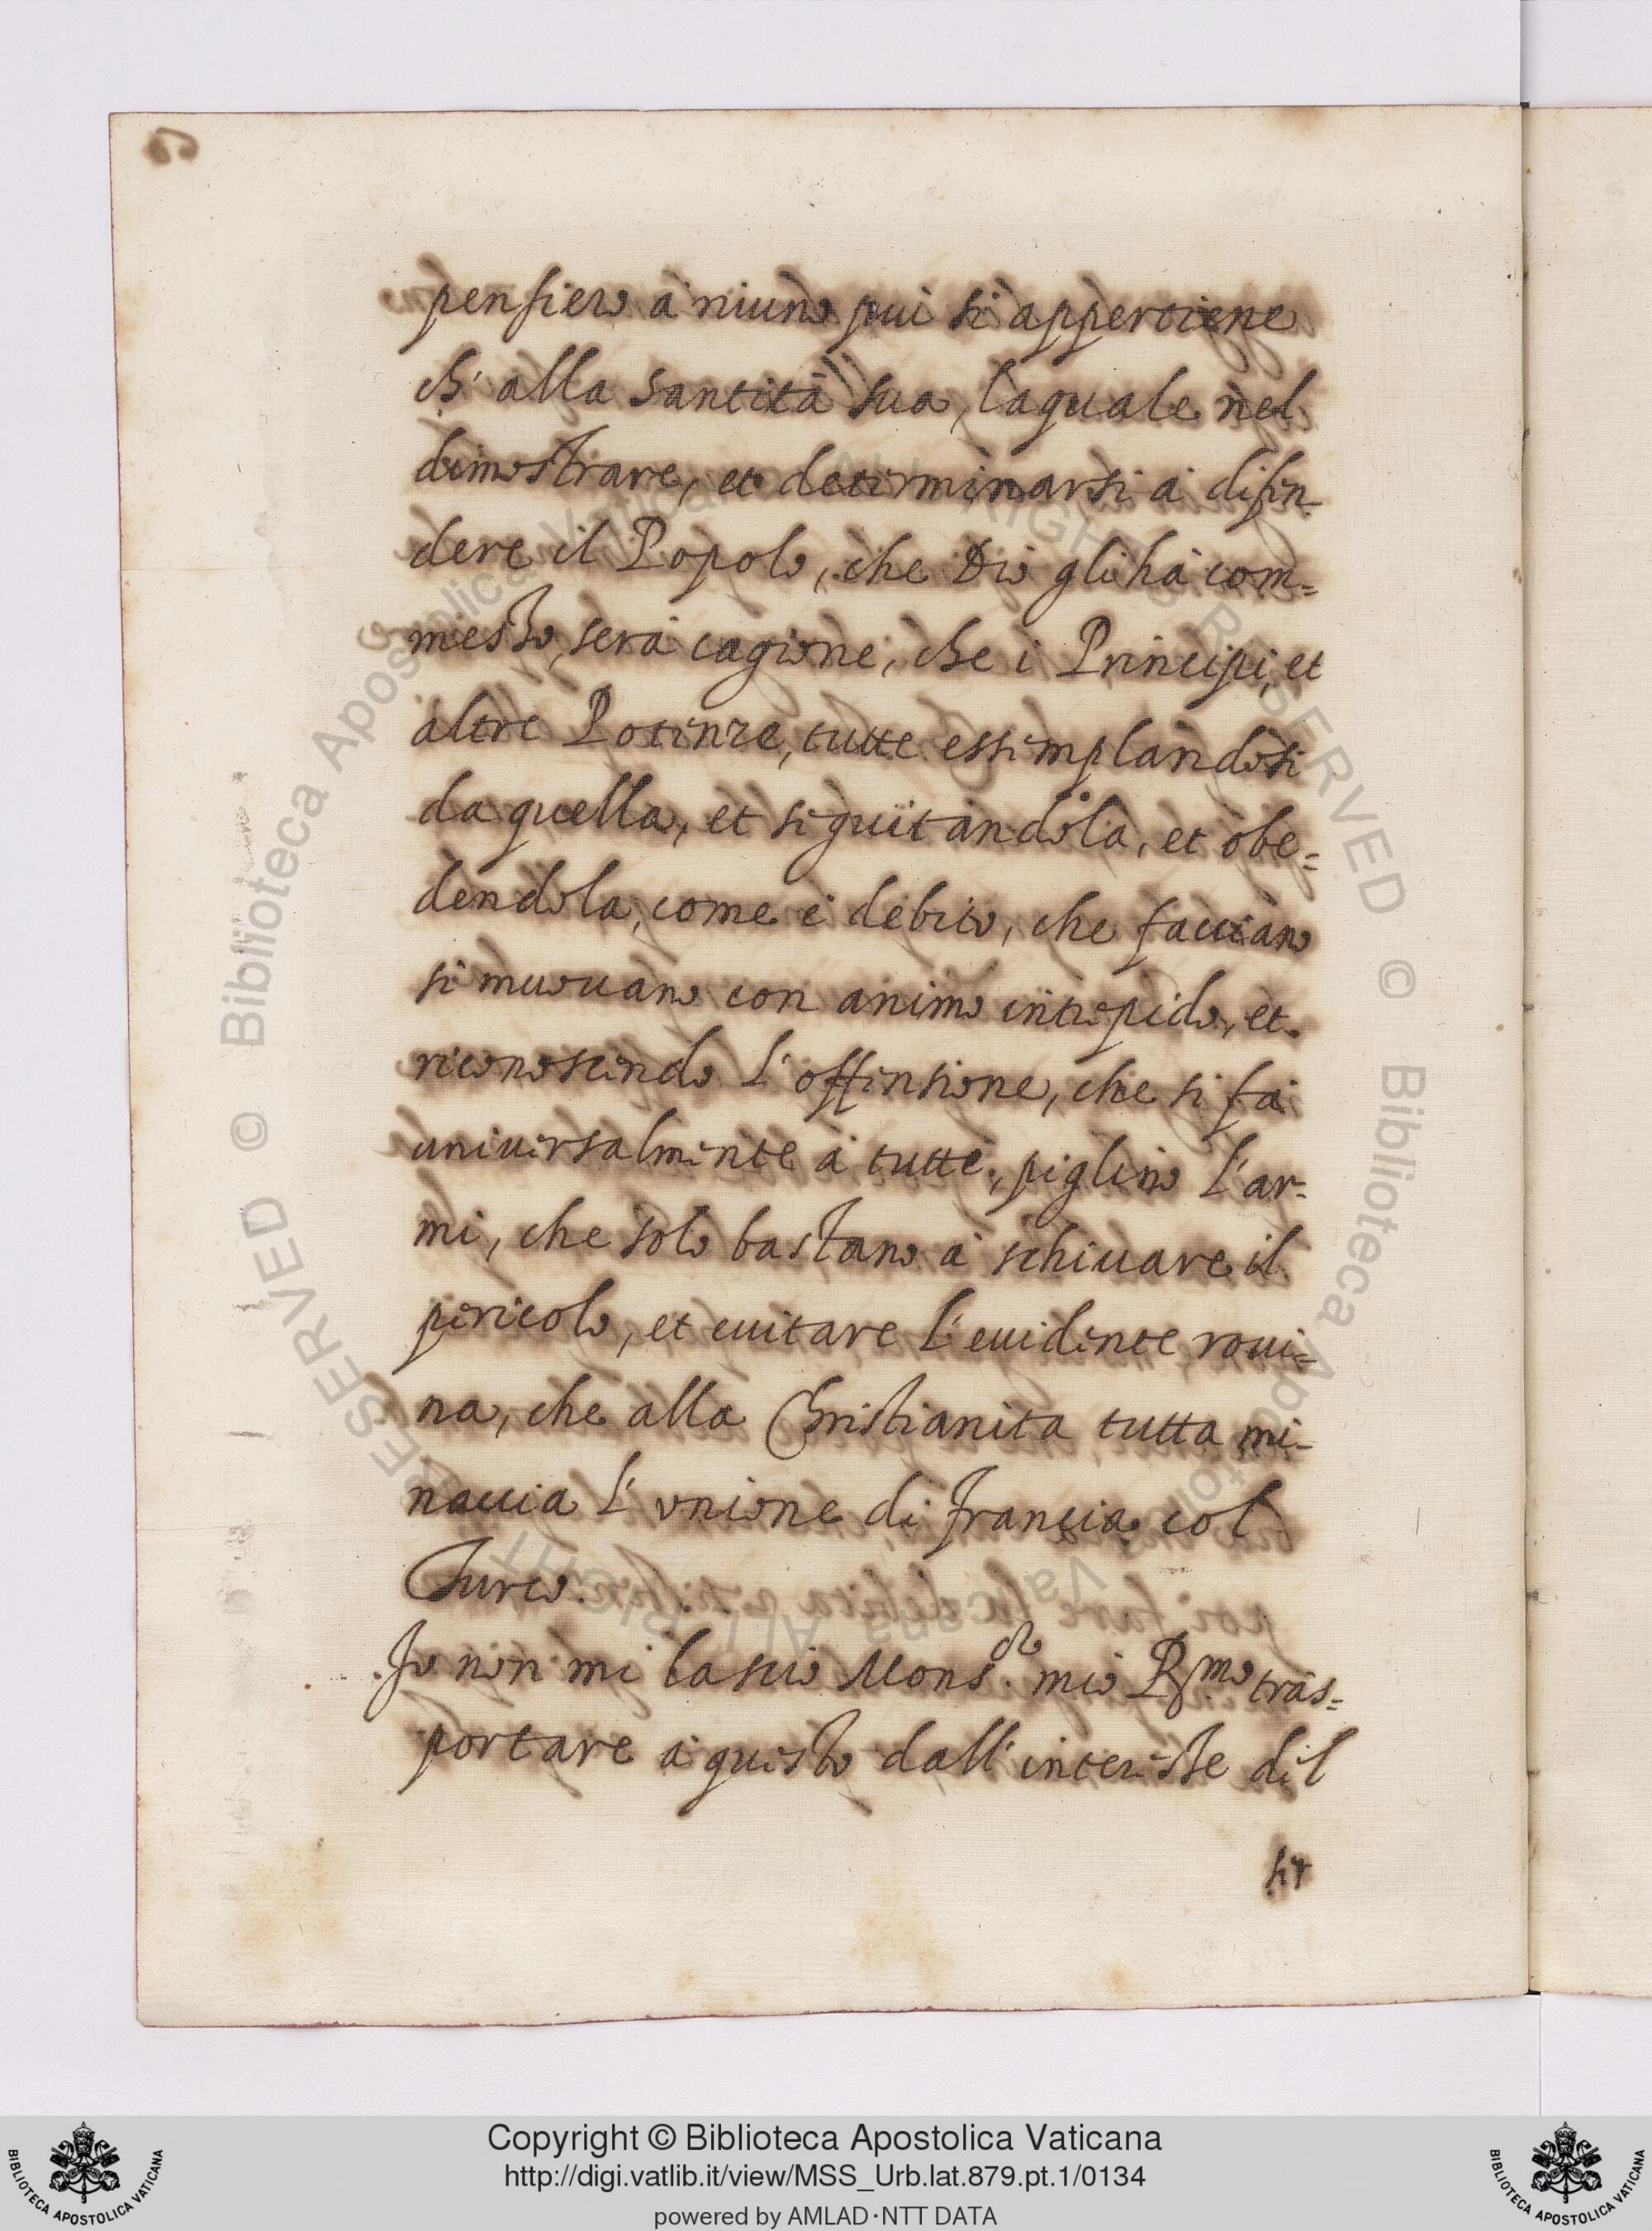 pensiero à niuno più si appertiene
ch' alla Santità Sua, laquale nel
dimostrare, et determinarsi à difen-
dere il Popolo, che Dio gli hà com=
messo, serà cagione, che i Principi, et
altre Potenze, tutte essemplandosi
da quella, et seguitandola, et obe=
dendola, come è debito, che facciano
si muovano con animo intrepido, et
riconoscendo l'offensione, che si fà
universalmente à tutte, piglino l'ar-
mi, che solo bastano à schivare il
pericolo, et evitare l'evidente roui=
na, che alla Christianita tutta mi-
naccia l'vnione di Francia col
Turco.
Io non mi lascio Mons.or mio R.mo tras=
portare à questo dall'interesse del
ser
Copyright © Biblioteca Apostolica Vaticana
http://digi.vatlib.it/view/MSS_Urb.lat.879.pt.1/0134
powered by AMLAD·NTT DATA